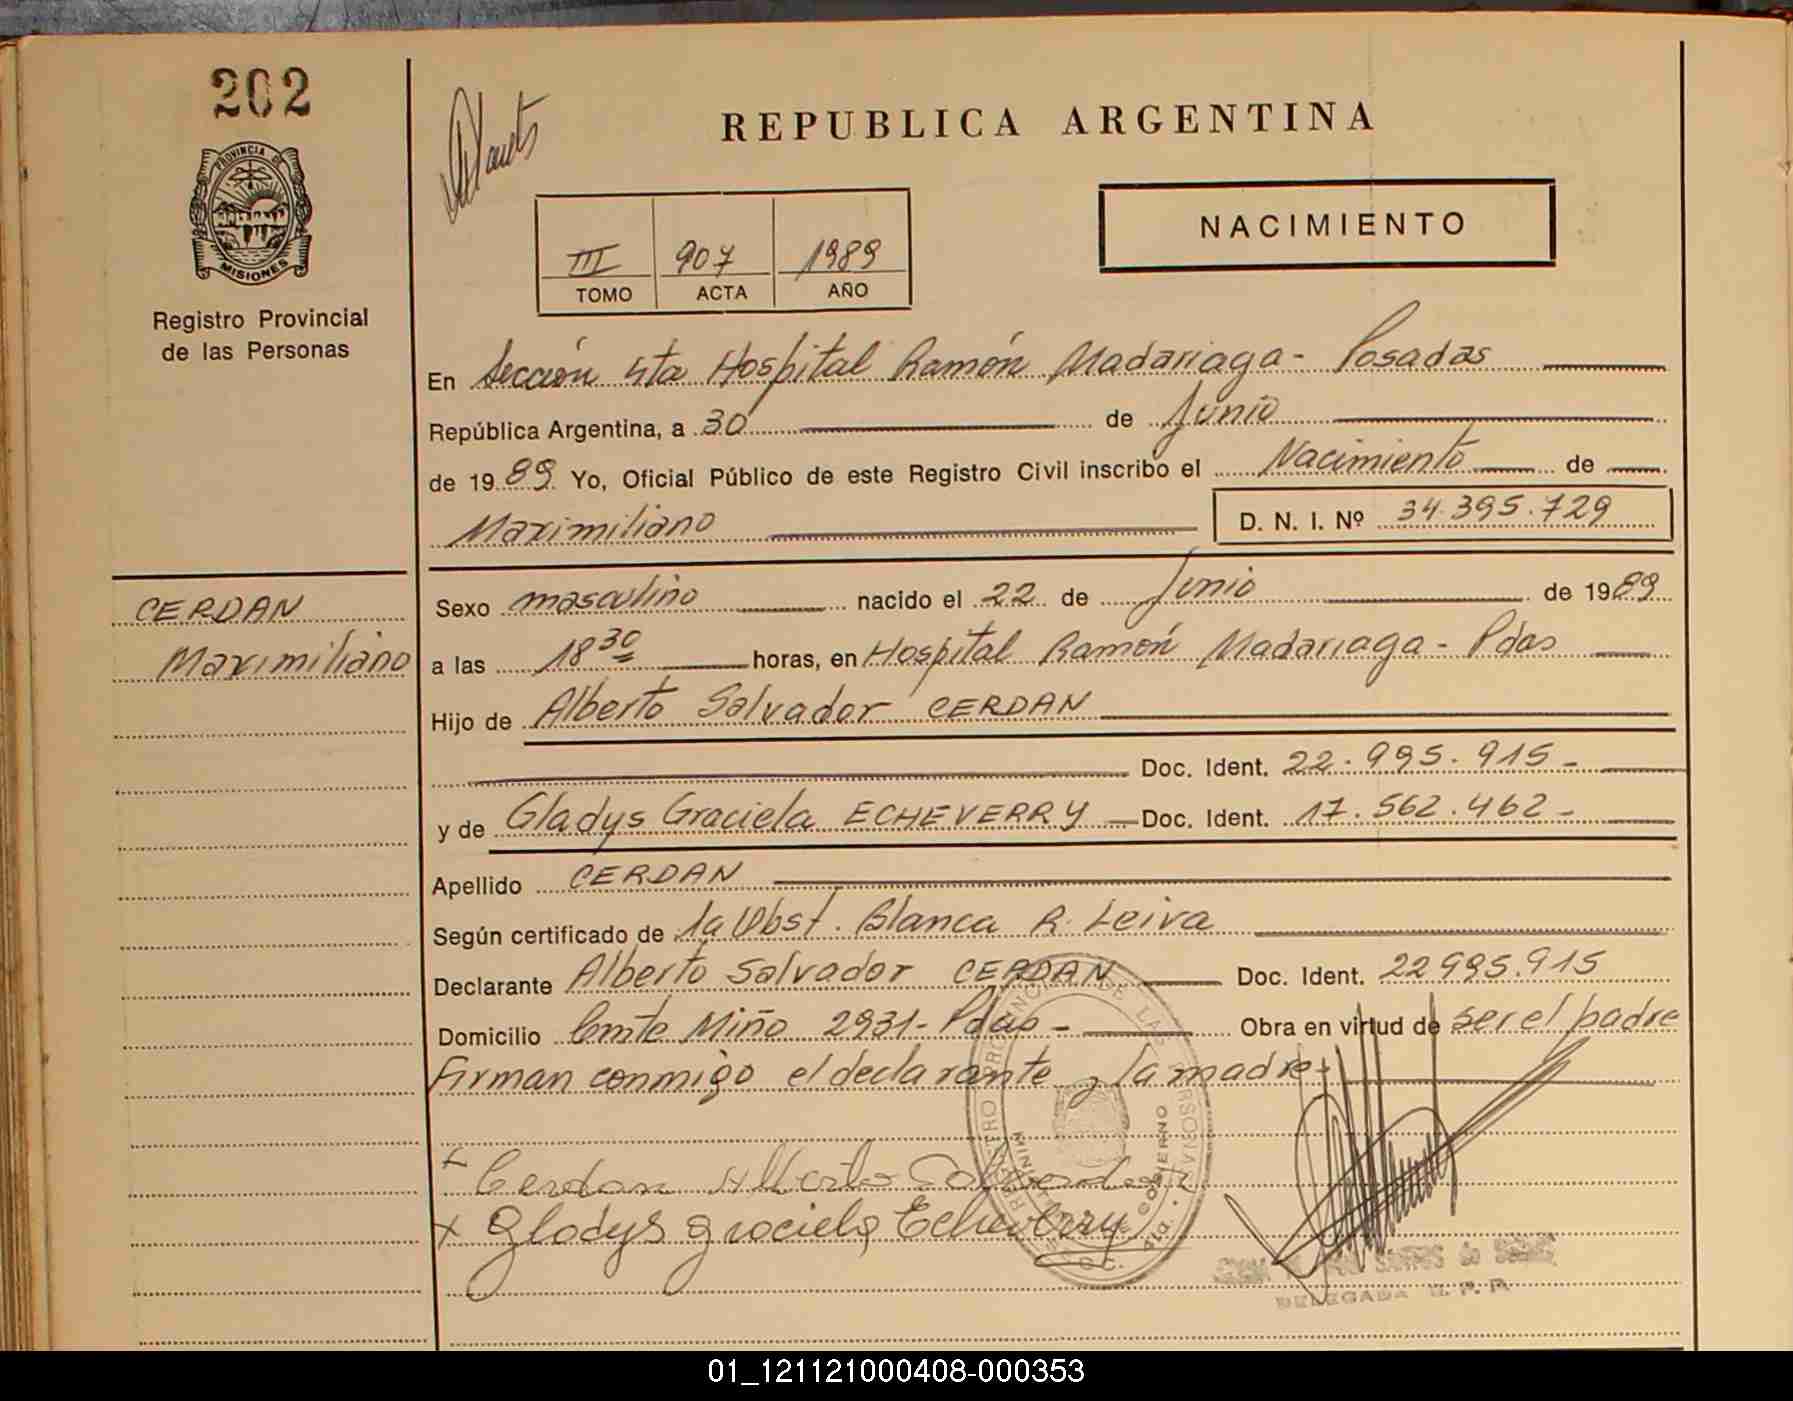 202
PROVINCIA DE
MISIONES
Registro Provincial
de las Personas
REPUBLICA ARGENTINA
III 907 1989
TOMO ACTA AÑO
NACIMIENTO
En Sección 4ta Hospital Ramón Madariaga - Posadas
República Argentina, a 30 de Junio
de 1989 Yo, Oficial Público de este Registro Civil inscribo el Nacimiento de
Maximiliano D. N. I. Nº 34.395.729
CERDAN
Maximiliano
Sexo masculino nacido el 22 de Junio de 1989
a las 18 30 horas, en Hospital Ramón Madariaga - Pdas
Hijo de Alberto Salvador CERDAN
Doc. Ident. 22.995.915 -
y de Gladys Graciela ECHEVERRY Doc. Ident. 17.562.462 -
Apellido CERDAN
Según certificado de la Obst. Blanca R. Leiva
Declarante Alberto Salvador CERDAN Doc. Ident. 22995.915
Domicilio Cmte Miño 2931 - Pdas - Obra en virtud de ser el padre
Firman conmigo el declarante y la madre -
Cerdan Alberto Salvador
x Gladys Graciela Echeverry
DELEGADA R. P. P.
01_121121000408-000353